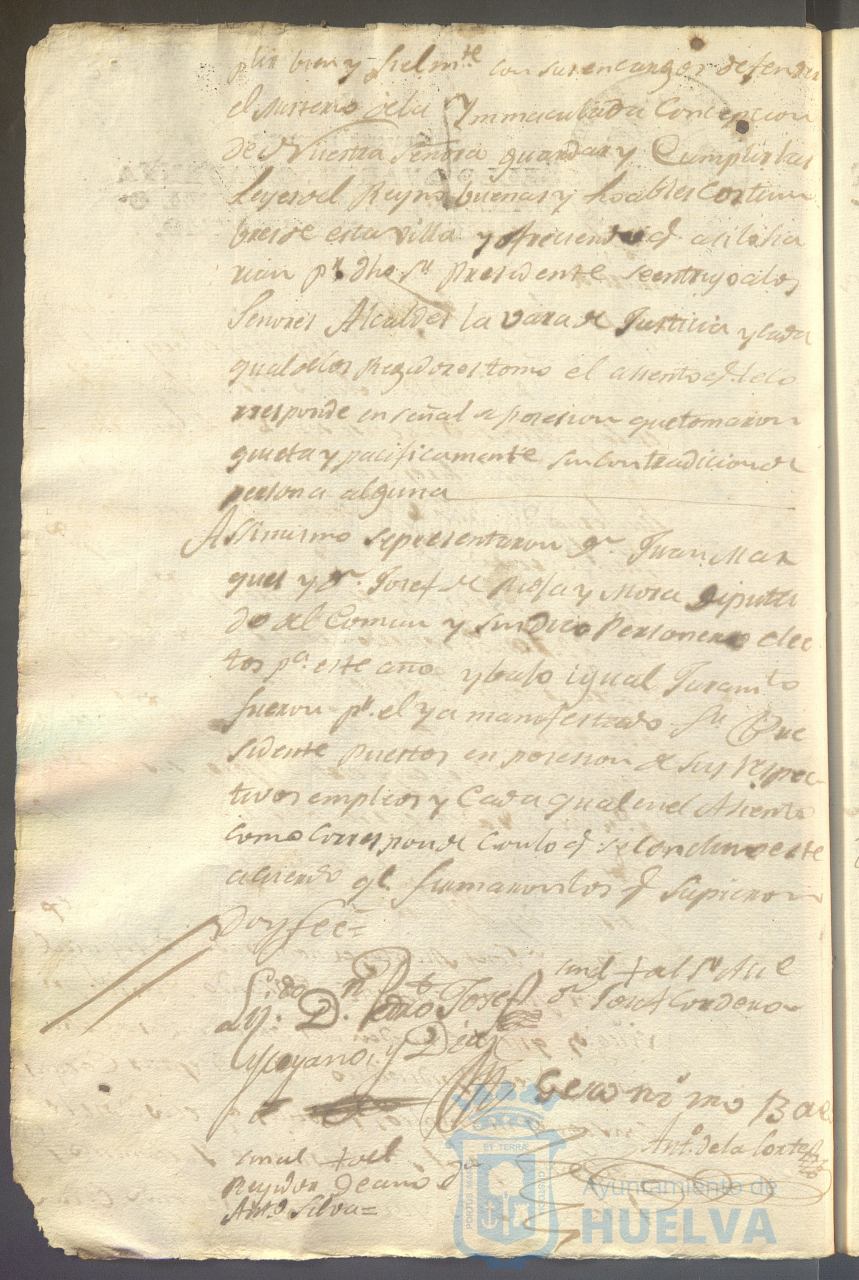 plir bien y fielmte con sus encargos defender
el Misterio dela Ymmaculada Concepcion
de Nuestra Señora guardar y Cumplir las
Leyes del Reyno buenas y loables Costum
bres de esta villa y ofreciendo q asi lo ha
rian pr dho Sr Presidente se entrego a los
Señores Alcaldes la vara de Justicia y cada
qual de los Regidores tomo el asiento q le co
rresponde en señal de posesion que tomaron
quieta y pacificamente sin contradicion de
persona alguna
Assimismo se presentaron Dn Juan Mar
ques y Dn Josef de Mora Diputa
do del Comun y Sindico Personero elec
tos pa este año y bajo igual Juramto
fueron pr el ya manifestado Sr Pre
sidente puestos en posesion de sus respec
tivos empleos y Cada qual en el Asiento
como corresponde con lo q se concluyo este
acuerdo q firmaron los q supieron
Doy fee=
Lizdo Dn Pedro Josef
y Diaz
señal + del Sr Alle
Dn Josef Cordero
Geronimo Bae
Anto de la Corte
señal + del
Rejidor Decano Dn
Anto Silva=
ET TERRAE
Ayuntamiento de
HUELVA